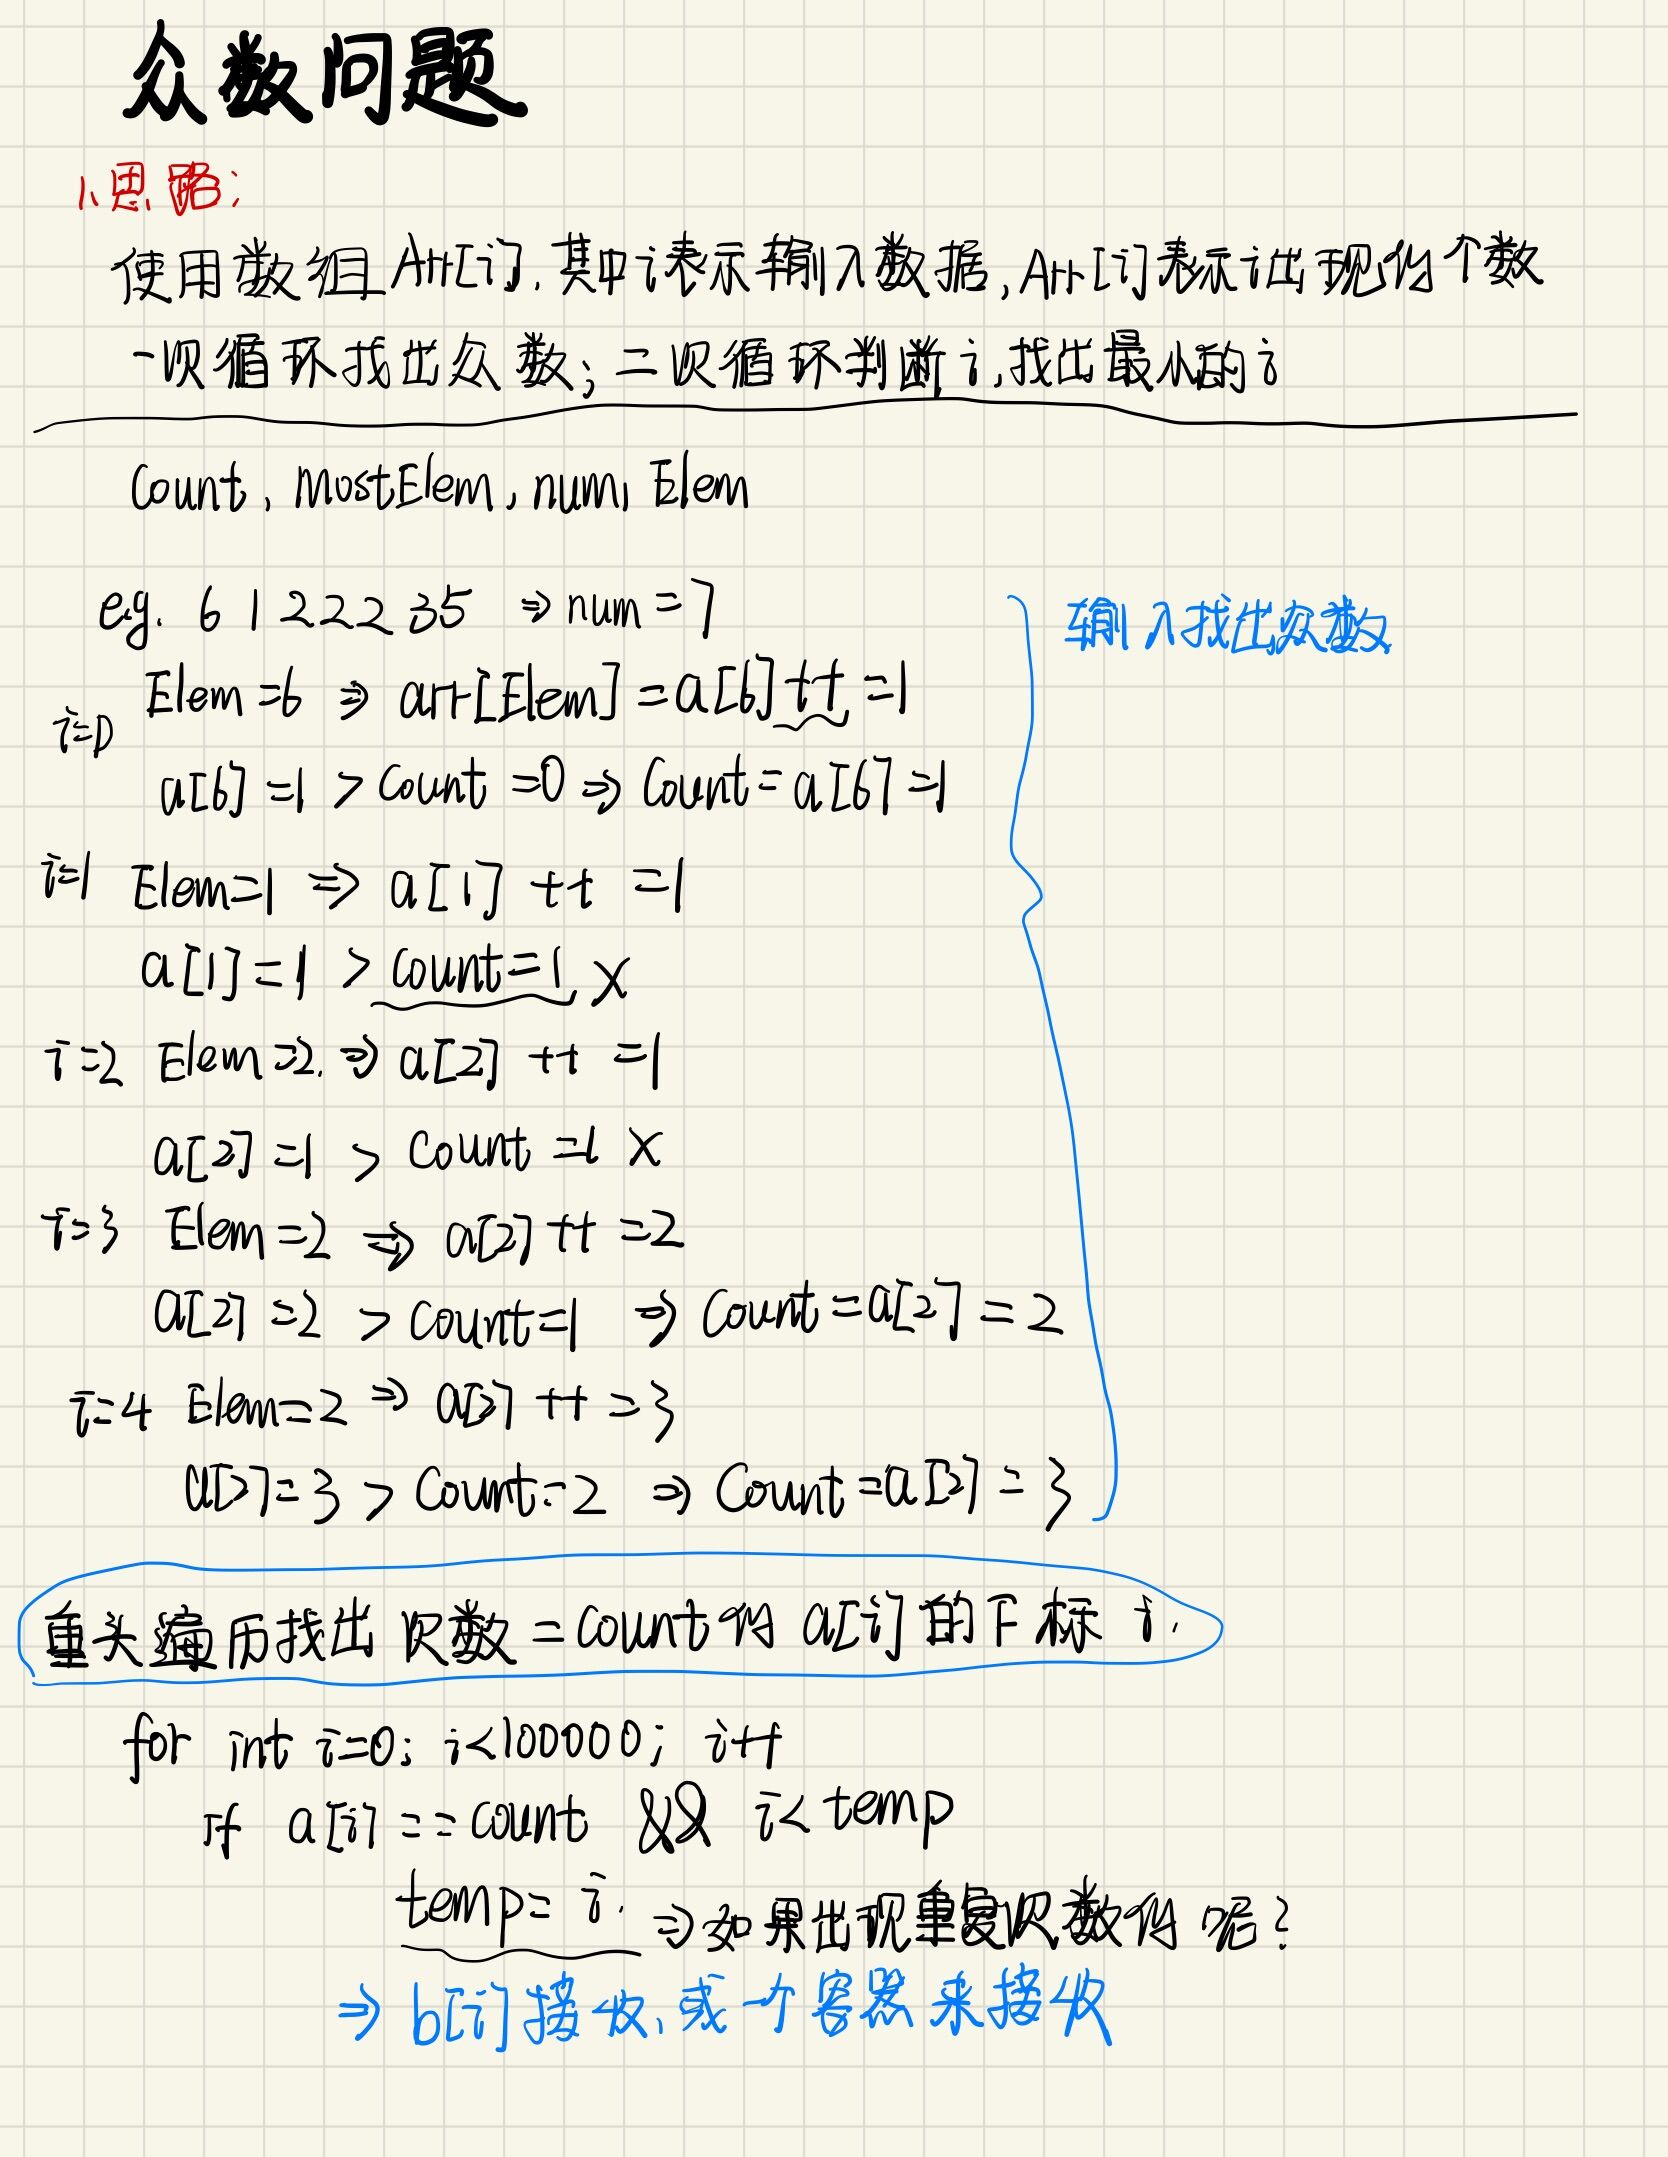 众数问题
1、思路:
使用数组Arr[i],其中i表示输入数据,Arr[i]表示i出现的个数
一次循环找出众数;二次循环判断i,找出最小的i
Count, mostElem, num, Elem
e.g. 6 1 2 2 2 3 5 ⇒ num=7
输入找出众数
i=0 Elem=6 ⇒ arr[Elem]=a[6]++=1
a[6]=1 > count=0 ⇒ Count=a[6]=1
i=1 Elem=1 ⇒ a[1]++ =1
a[1]=1 > count=1 ×
i=2 Elem=2. ⇒ a[2]++ =1
a[2]=1 > count=1 ×
i=3 Elem=2 ⇒ a[2]++ =2
a[2]=2 > count=1 ⇒ Count=a[2]=2
i=4 Elem=2 ⇒ a[2]++ =3
a[2]=3 > Count=2 ⇒ Count=a[2]=3
重头遍历找出次数=count的a[i]的下标i.
for int i=0; i<100000; i++
if a[i]==count && i<temp
temp=i. ⇒如果出现重复次数的呢?
⇒ b[i]接收,或一个容器来接收